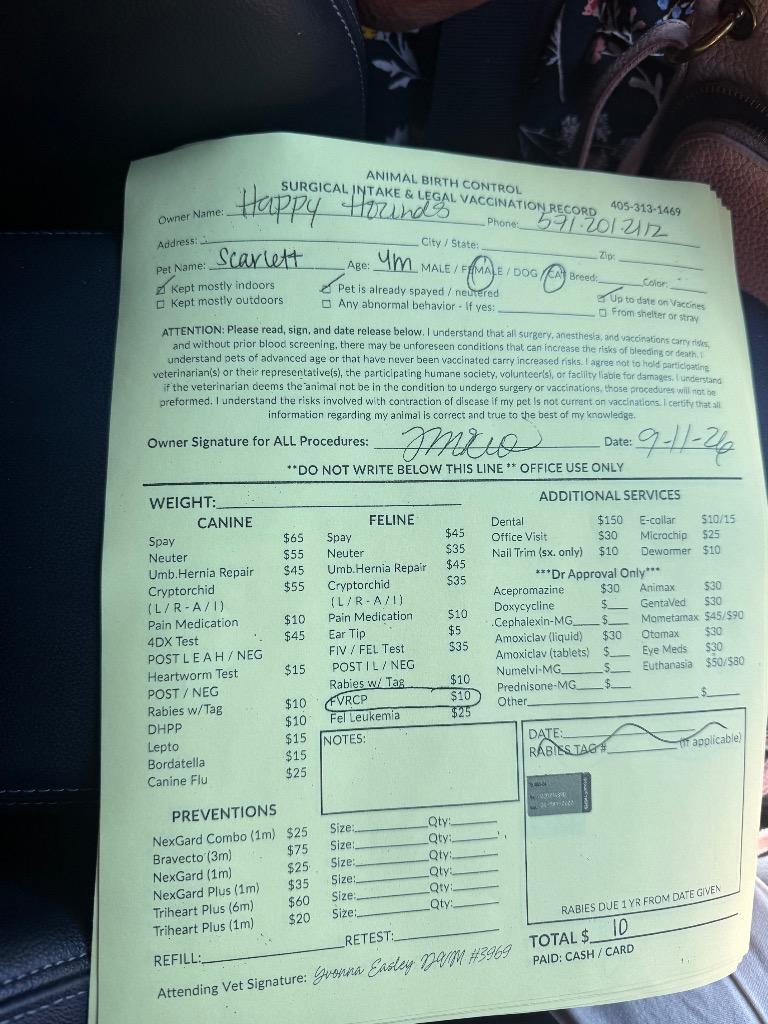 ANIMAL BIRTH CONTROL
SURGICAL INTAKE & LEGAL VACCINATION RECORD 405-313-1469
Owner Name: Happy Hounds Phone: 591-201-2112
Address: City / State: Zip:
Pet Name: Scarlett Age: 4m MALE / FEMALE / DOG / CAT Breed: Color:
Kept mostly indoors Pet is already spayed / neutered Up to date on Vaccines
Kept mostly outdoors Any abnormal behavior - If yes: From shelter or stray
ATTENTION: Please read, sign, and date release below. I understand that all surgery, anesthesia, and vaccinations carry risks,
and without prior blood screening, there may be unforeseen conditions that can increase the risks of bleeding or death. I
understand pets of advanced age or that have never been vaccinated carry increased risks. I agree not to hold participating
veterinarian(s) or their representative(s), the participating humane society, volunteer(s), or facility liable for damages. I understand
if the veterinarian deems the animal not be in the condition to undergo surgery or vaccinations, those procedures will not be
preformed. I understand the risks involved with contraction of disease if my pet is not current on vaccinations. I certify that all
information regarding my animal is correct and true to the best of my knowledge.
Owner Signature for ALL Procedures: Date: 9-11-26
**DO NOT WRITE BELOW THIS LINE ** OFFICE USE ONLY
WEIGHT:
CANINE
Spay $65
Neuter $55
Umb.Hernia Repair $45
Cryptorchid $55
( L / R - A / I )
Pain Medication $10
4DX Test $45
POST L E A H / NEG
Heartworm Test $15
POST / NEG
Rabies w/Tag $10
DHPP $10
Lepto $15
Bordatella $15
Canine Flu $25
FELINE
Spay $45
Neuter $35
Umb.Hernia Repair $45
Cryptorchid $35
( L / R - A / I )
Pain Medication $10
Ear Tip $5
FIV / FEL Test $35
POST I L / NEG
Rabies w/ Tag $10
FVRCP $10
Fel Leukemia $25
ADDITIONAL SERVICES
Dental $150 E-collar $10/15
Office Visit $30 Microchip $25
Nail Trim (sx. only) $10 Dewormer $10
***Dr Approval Only***
Acepromazine $30 Animax $30
Doxycycline $ GentaVed $30
Cephalexin-MG $ Mometamax $45/$90
Amoxiclav (liquid) $30 Otomax $30
Amoxiclav (tablets) $ Eye Meds $30
Numelvi-MG $ Euthanasia $50/$80
Prednisone-MG $
Other $
NOTES:
DATE:
RABIES TAG # (if applicable)
RABIES DUE 1 YR FROM DATE GIVEN
PREVENTIONS
NexGard Combo (1m) $25 Size: Qty:
Bravecto (3m) $75 Size: Qty:
NexGard (1m) $25 Size: Qty:
NexGard Plus (1m) $35 Size: Qty:
Triheart Plus (6m) $60 Size: Qty:
Triheart Plus (1m) $20 Size:
REFILL: RETEST:
TOTAL $ 10
PAID: CASH / CARD
Attending Vet Signature: Yvonna Easley DVM #3969